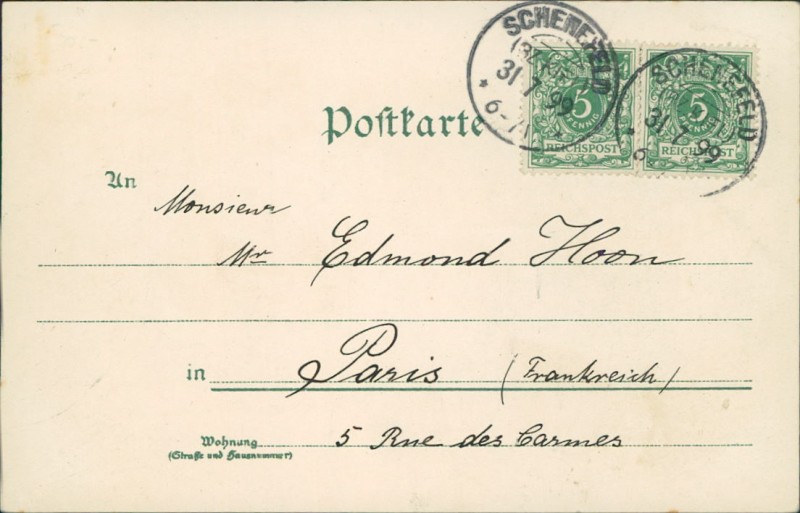 SCHENEFELD
31 7 99
5
PFENNIG
REICHSPOST
SCHENEFELD
31 7 99
5
PFENNIG
REICHSPOST
Postkarte
An
Monsieur
Mr Edmond Hoon
in Paris (Frankreich)
Wohnung 5 Rue des Carmes
(Straße und Hausnummer)